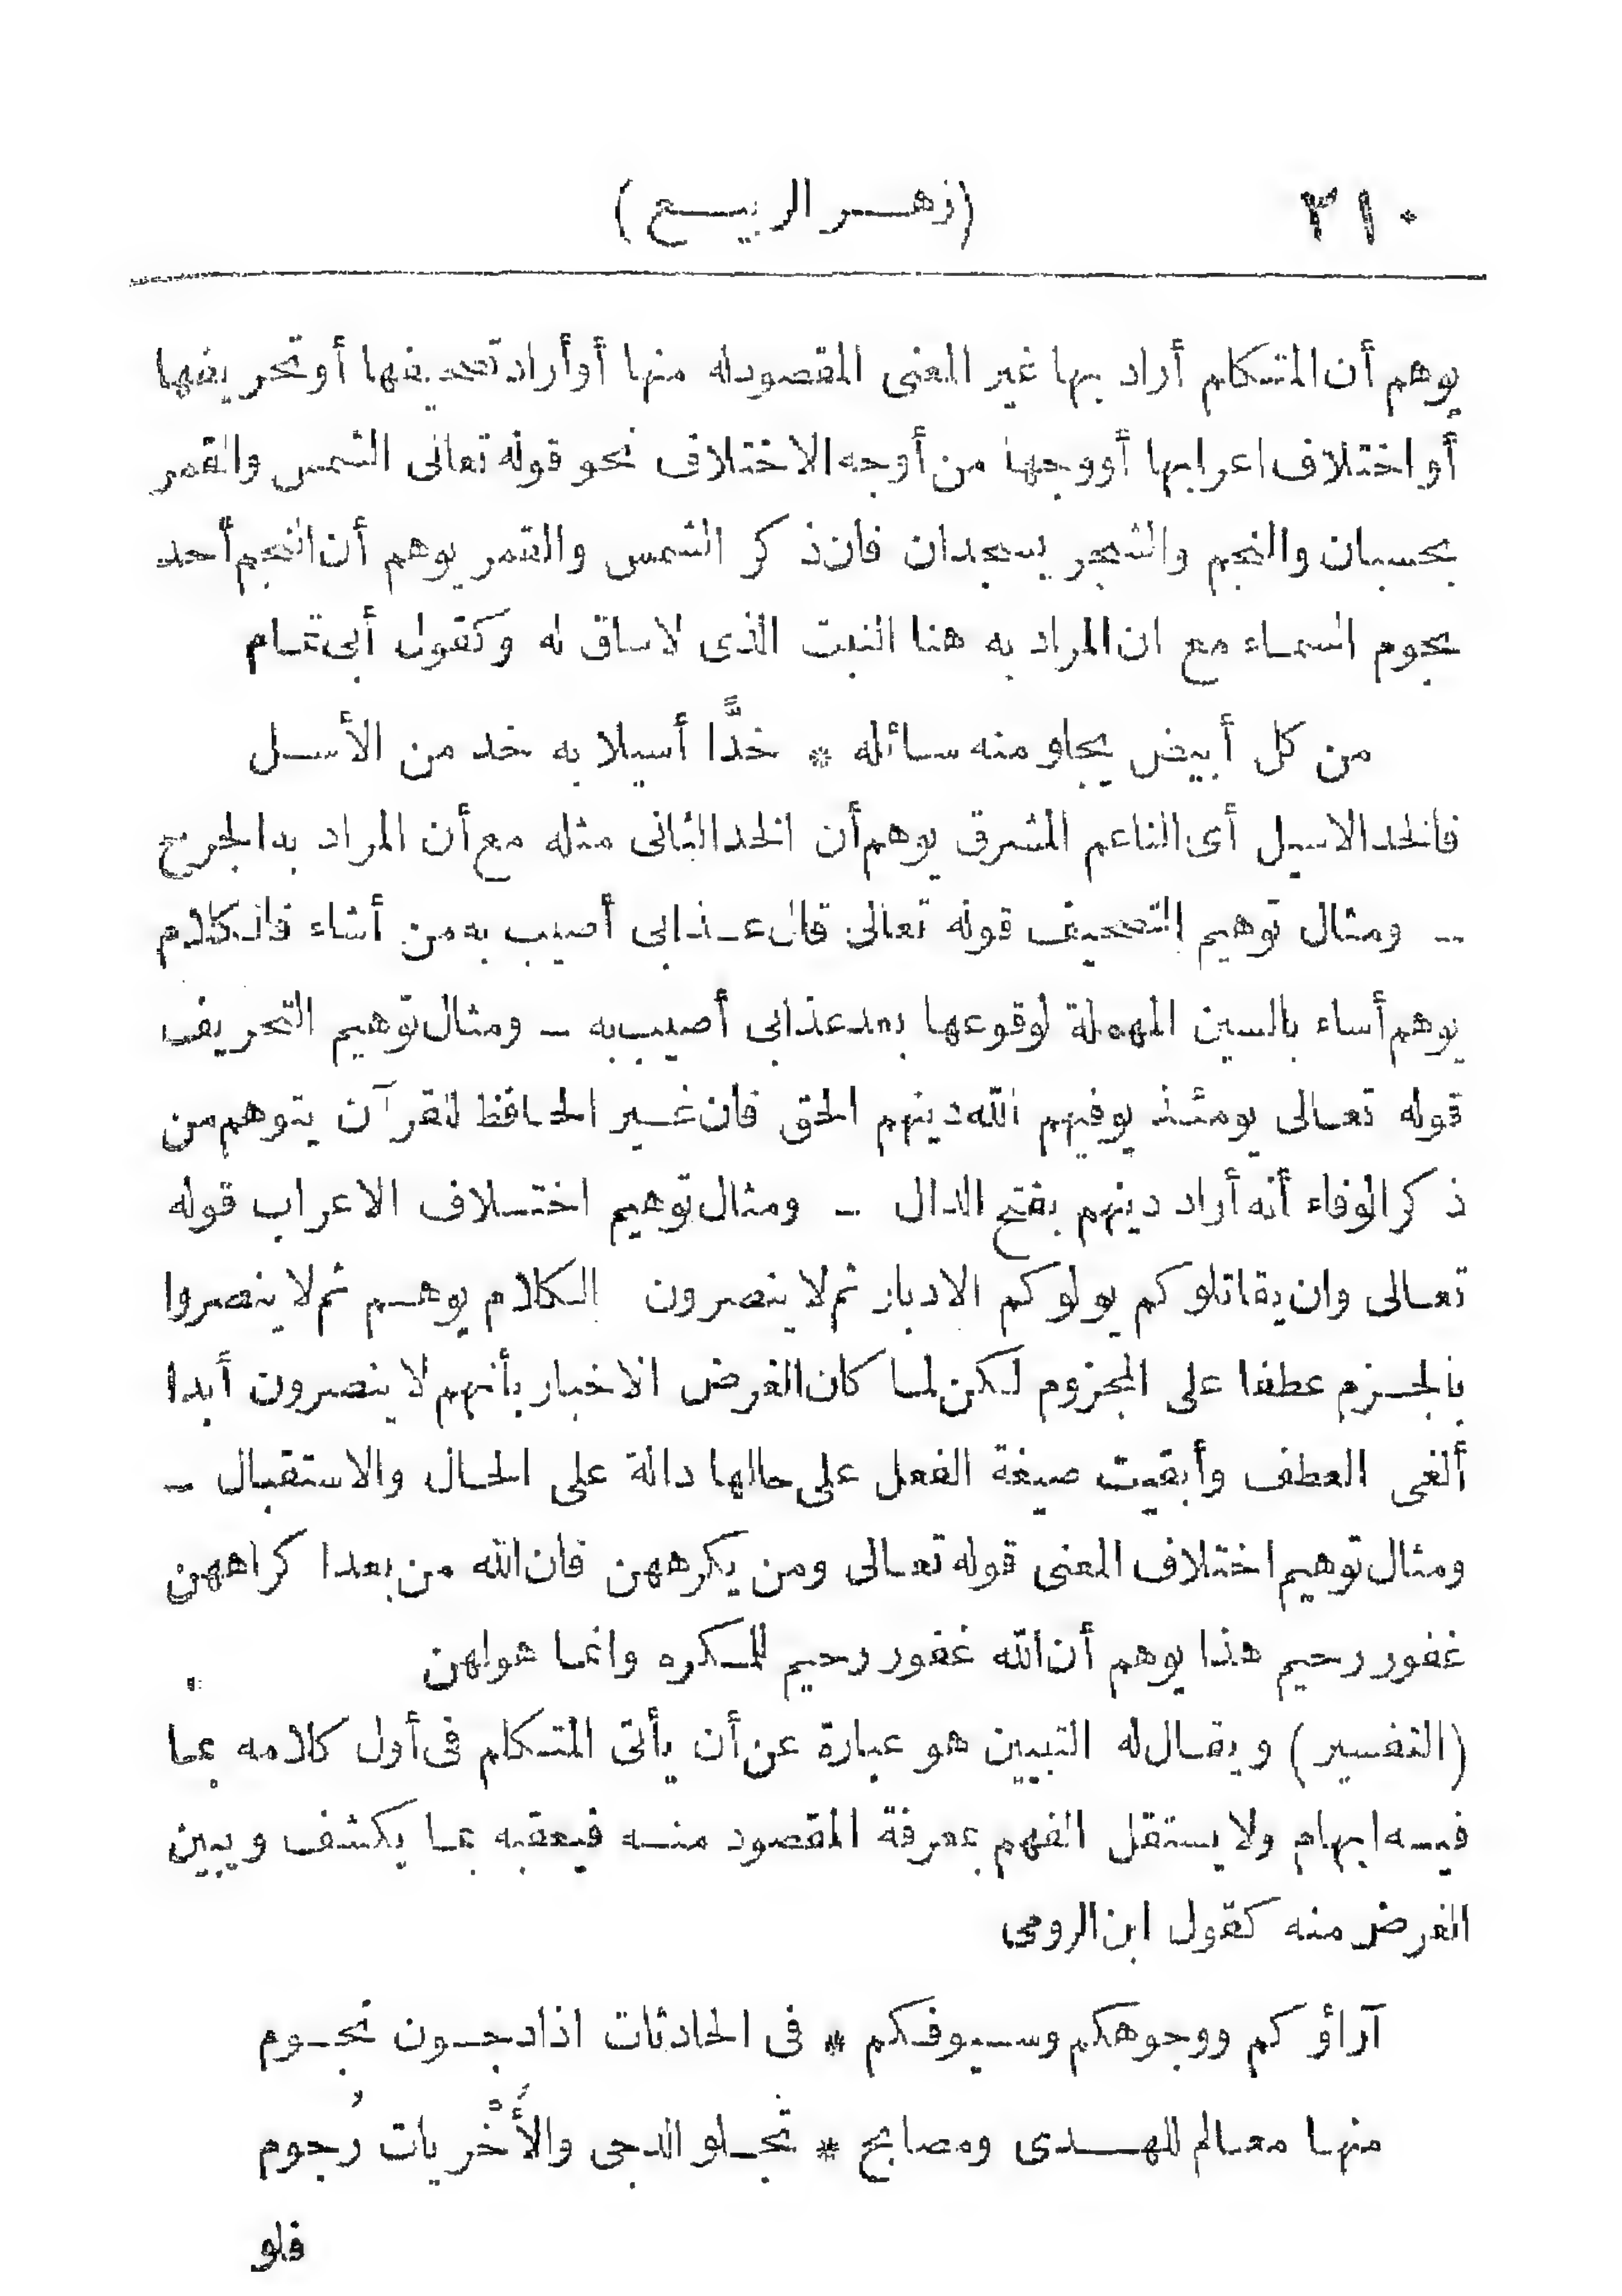 ٣١٠ (زهر الربيع)
يوهم أن المتكلم أراد بها غير المعنى المقصود له منها أو أراد تصحيفها أو تحريفها
أو اختلاف اعرابها أو وجها من أوجه الاختلاف نحو قوله تعالى الشمس والقمر
بحسبان والنجم والشجر يسجدان فان ذكر الشمس والقمر يوهم أن النجم أحد
نجوم السماء مع ان المراد به هنا النبت الذى لا ساق له وكقول أبى تمام
من كل أبيض يجلو منه سائله * خدًّا أسيلا به خد من الأسل
فالخد الاسيل أى الناعم المشرق يوهم أن الخد الثانى مثله مع أن المراد به الجرح
– ومثال توهيم التصحيف قوله تعالى قال عذابى أصيب به من أشاء فالكلام
يوهم أساء بالسين المهملة لوقوعها بعد عذابى أصيب به – ومثال توهيم التحريف
قوله تعالى يومئذ يوفيهم الله دينهم الحق فان غير الحافظ للقرآن يتوهم من
ذكر الوفاء أنه أراد دينهم بفتح الدال – ومثال توهيم اختلاف الاعراب قوله
تعالى وان يقاتلوكم يولوكم الادبار ثم لا ينصرون الكلام يوهم ثم لا ينصروا
بالجزم عطفا على المجزوم لكن لما كان الغرض الاخبار بأنهم لا ينصرون أبدا
ألغى العطف وأبقيت صيغة الفعل على حالها دالة على الحال والاستقبال –
ومثال توهيم اختلاف المعنى قوله تعالى ومن يكرههن فان الله من بعد اكراههن
غفور رحيم هذا يوهم أن الله غفور رحيم للمكره وانما هو لهن
(التفسير) ويقال له التبيين هو عبارة عن أن يأتى المتكلم فى أول كلامه بما
فيه ابهام ولا يستقل الفهم بمعرفة المقصود منه فيعقبه بما يكشف ويبين
الغرض منه كقول ابن الرومى
آراؤكم ووجوهكم وسيوفكم * فى الحادثات اذا دجون نجوم
منها معالم للهدى ومصابح * تجلو الدجى والأُخْريات رُجوم
فلو